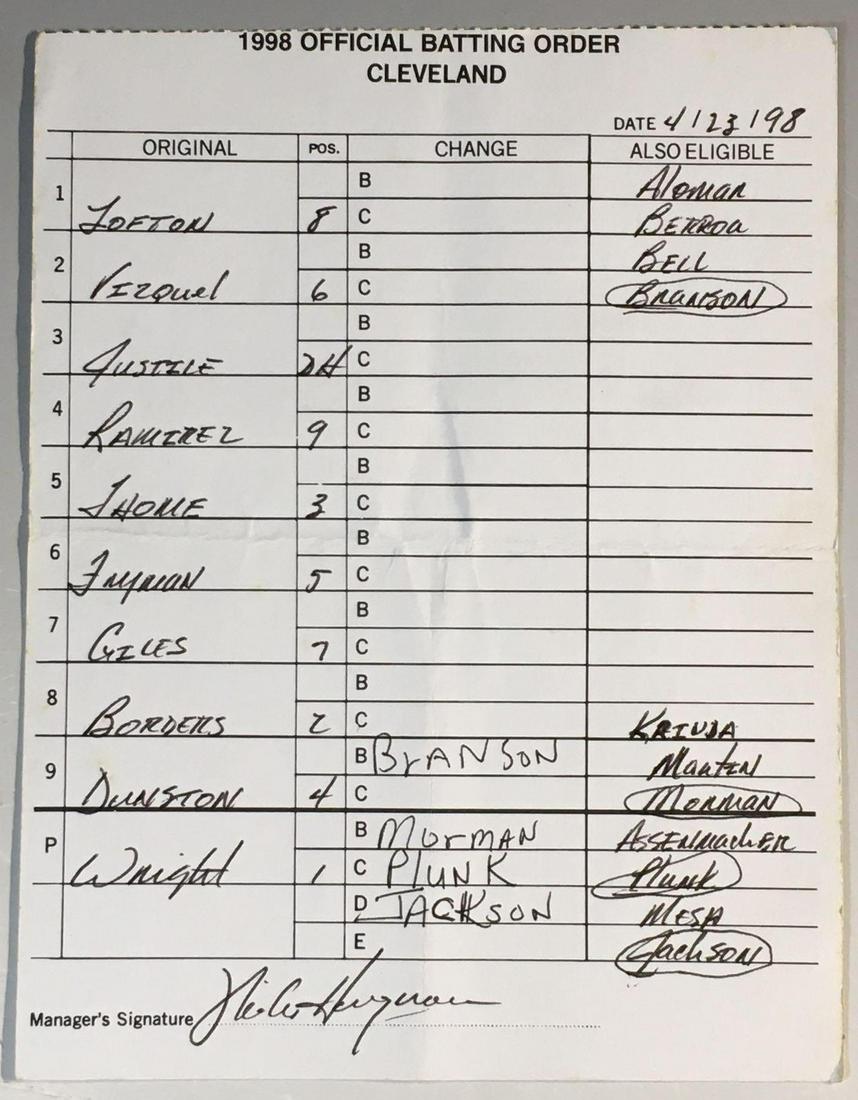 1998 OFFICIAL BATTING ORDER
CLEVELAND
DATE 4/23/98
ORIGINAL POS. CHANGE ALSO ELIGIBLE
1 B Alomar
LOFTON 8 C BERROA
2 B BELL
VIZQUEL 6 C BRANSON
3 B
JUSTICE DH C
4 B
RAMIREZ 9 C
5 B
THOME 3 C
6 B
FRYMAN 5 C
7 B
GILES 7 C
8 B
BORDERS 2 C KRIVDA
9 B BrANSON MARTIN
DUNSTON 4 C MORMAN
P B MorMAN ASSENMACHER
Wright 1 C PlUNK Plunk
D JACKSON MESA
E Jackson
Manager's Signature Mike Hargrove